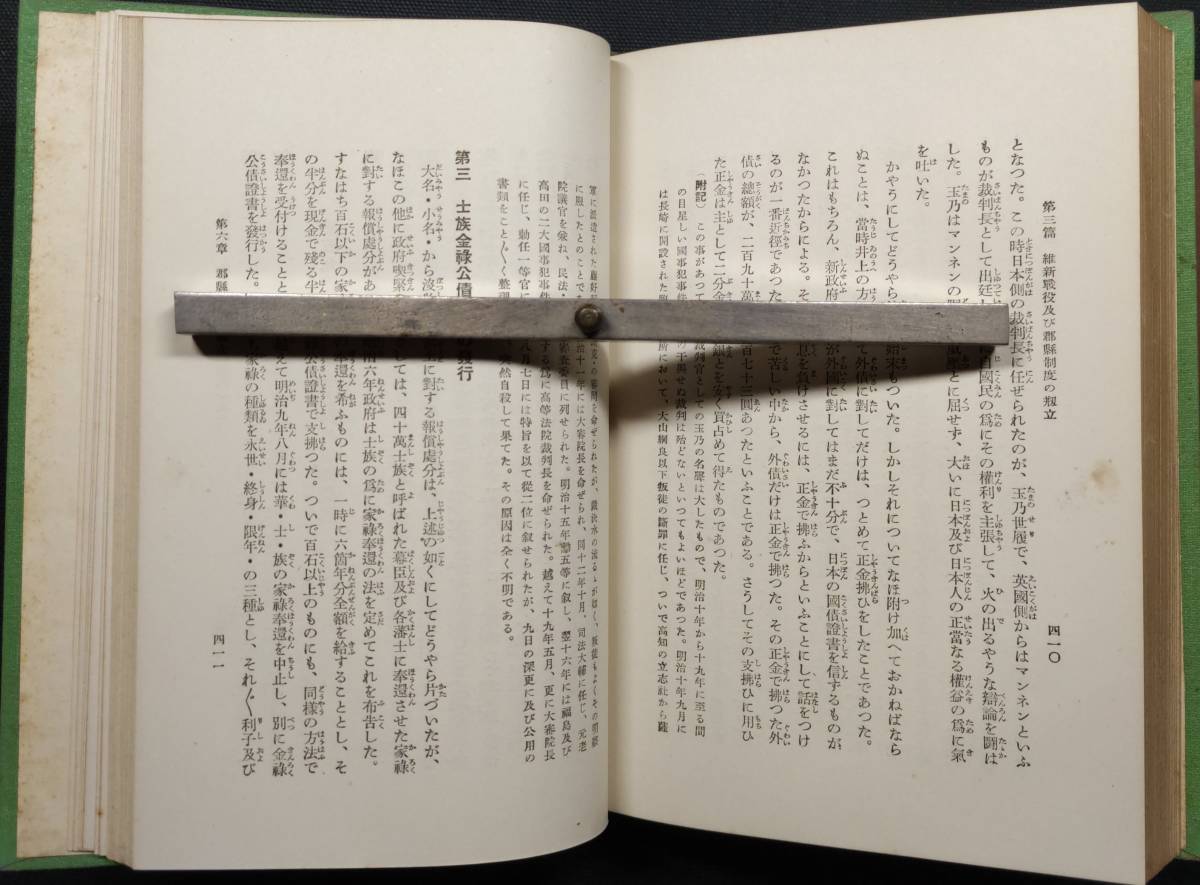 第三篇 維新職役及び郡縣制度の剏立
四一〇
となつた。この時日本側の裁判長に任ぜられたのが、玉乃世履で、英國側からはマンネンといふ
ものが裁判長として出廷し 自國民の爲にその權利を主張して、火の出るやうな辯論を鬪は
した。玉乃はマンネンの 威壓とに屈せず、大いに日本及び日本人の正當なる權益の爲に氣
を吐いた。
かやうにしてどうやら 始末もついた。しかしそれについてなほ附け加へておかねばなら
ぬことは、當時井上の方 て外債に對してだけは、つとめて正金拂ひをしたことであつた。
これはもちろん、新政府 が外國に對してはまだ不十分で、日本の國債證書を信ずるものが
なかつたからによる。そ 息を負けさせるには、正金で拂ふからといふことにして話をつけ
るのが一番近徑であつた で苦しい中から、外債だけは正金で拂つた。その正金で拂つた外
債の總額が、二百九十萬 百七十三圓あつたといふことである。さうしてその支拂ひに用ひ
た正金は主として二分金 銀とを安く買占めて得たものであつた。
(附記) この事があつて 裁判官としての玉乃の名聲は大したもので、明治十年から十九年に至る間
の目星しい國事犯事件 の干與せぬ裁判は殆どないといつてもよいほどであつた。明治十年九月に
は長崎に開設された 所において、大山綱良以下叛徒の斷罪に任じ、ついで高知の立志社から薩
軍に派遣された の審問を命ぜられたが、裁決水の流るるが如く、叛徒もよくその明斷
に服したとのことで 治十一年には大審院長を命ぜられ、同十二年十月、司法大輔に任じ、元老
院議官を兼ね、民法・ 審査委員に列せられた。明治十五年勳五等に叙し、翌十六年には福島及び
高田の二大國事犯事件 する爲に高等法院裁判長を命ぜられた。越えて十九年五月、更に大審院長
に任じ、勅任一等官に 八月七日には特旨を以て從二位に叙せられたが、九日の深更に及び公用の
書類をこと〲く整理 突然自殺して果てた。その原因は全く不明である。
第三 士族金祿公債 の發行
大名・小名・から沒收 土に對する報償處分は、上述の如くにしてどうやら片づいたが、
なほこの他に政府喫緊 しては、四十萬士族と呼ばれた幕臣及び各藩士に奉還させた家祿
に對する報償處分があ 明治六年政府は士族の爲に家祿奉還の法を定めてこれを布告した。
すなはち百石以下の家 奉還を希ふものには、一時に六箇年分全額を給することとし、そ
の半分を現金で殘る半 公債證書で支拂つた。ついで百石以上のものにも、同樣の方法で
奉還を受付けることと 越えて明治九年八月には華・士・族の家祿奉還を中止し、別に金祿
公債證書を發行した。 家祿の種類を永世・終身・限年・の三種とし、それ〲利子及び
第六章 郡縣
四一一